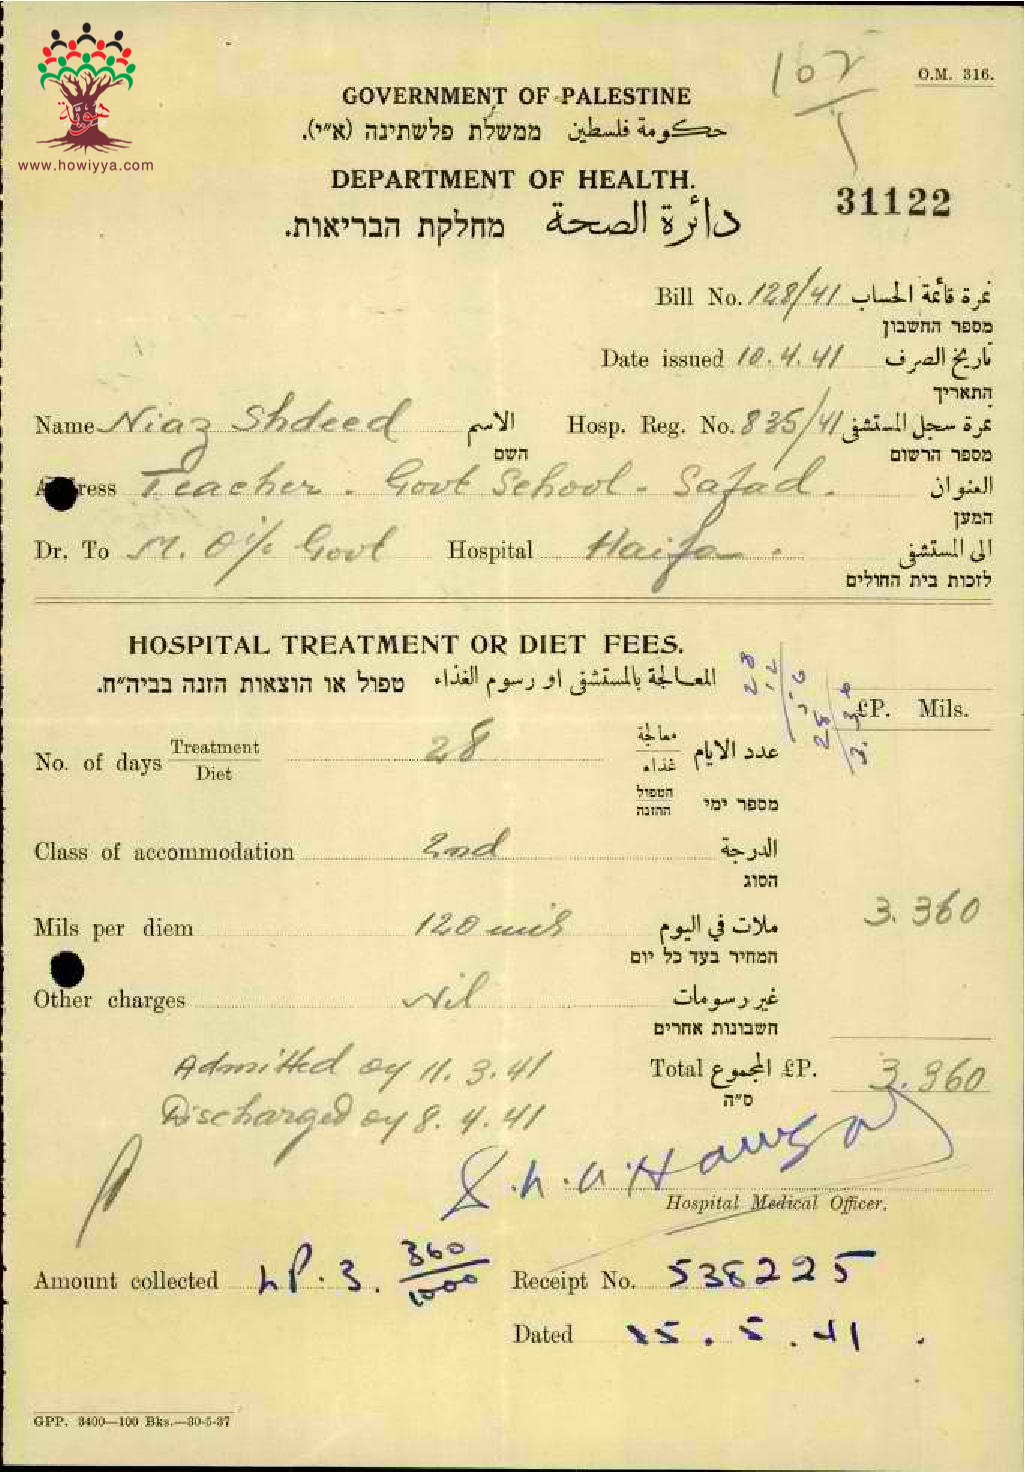 هوية
www.howiyya.com
O.M. 316.
GOVERNMENT OF PALESTINE
حكومة فلسطين ממשלת פלשתינה (א"י).
DEPARTMENT OF HEALTH.
31122
دائرة الصحة מחלקת הבריאות.
Bill No. 128/41 نمرة قائمة الحساب
מספר החשבון
Date issued 10.4.41 تاريخ الصرف
התאריך
Name Niaz Shdeed الاسم Hosp. Reg. No. 835/41 نمرة سجل المستشفى
השם מספר הרשום
Address Teacher. Govt School - Safad. العنوان
המען
Dr. To M. O i/c Govt Hospital Haifa. الى المستشفى
לזכות בית החולים
HOSPITAL TREATMENT OR DIET FEES.
المعالجة بالمستشفى او رسوم الغذاء טפול או הוצאות הזנה בביה"ח.
£P. Mils.
No. of days Treatment/Diet 28 معالجة/غذاء عدد الايام
הטפול/ההזנה מספר ימי
Class of accommodation 2nd الدرجة
הסוג
Mils per diem 120 mils ملات في اليوم 3.360
המחיר בעד כל יום
Other charges Nil غير رسومات
חשבונות אחרים
Admitted on 11.3.41 Total المجموع £P. 3.360
ס"ה
Discharged on 8.4.41
Hospital Medical Officer.
Amount collected LP. 3. 360/1000 Receipt No. 538225
Dated 15.5.41.
GPP. 3400—100 Bks.—30-5-37